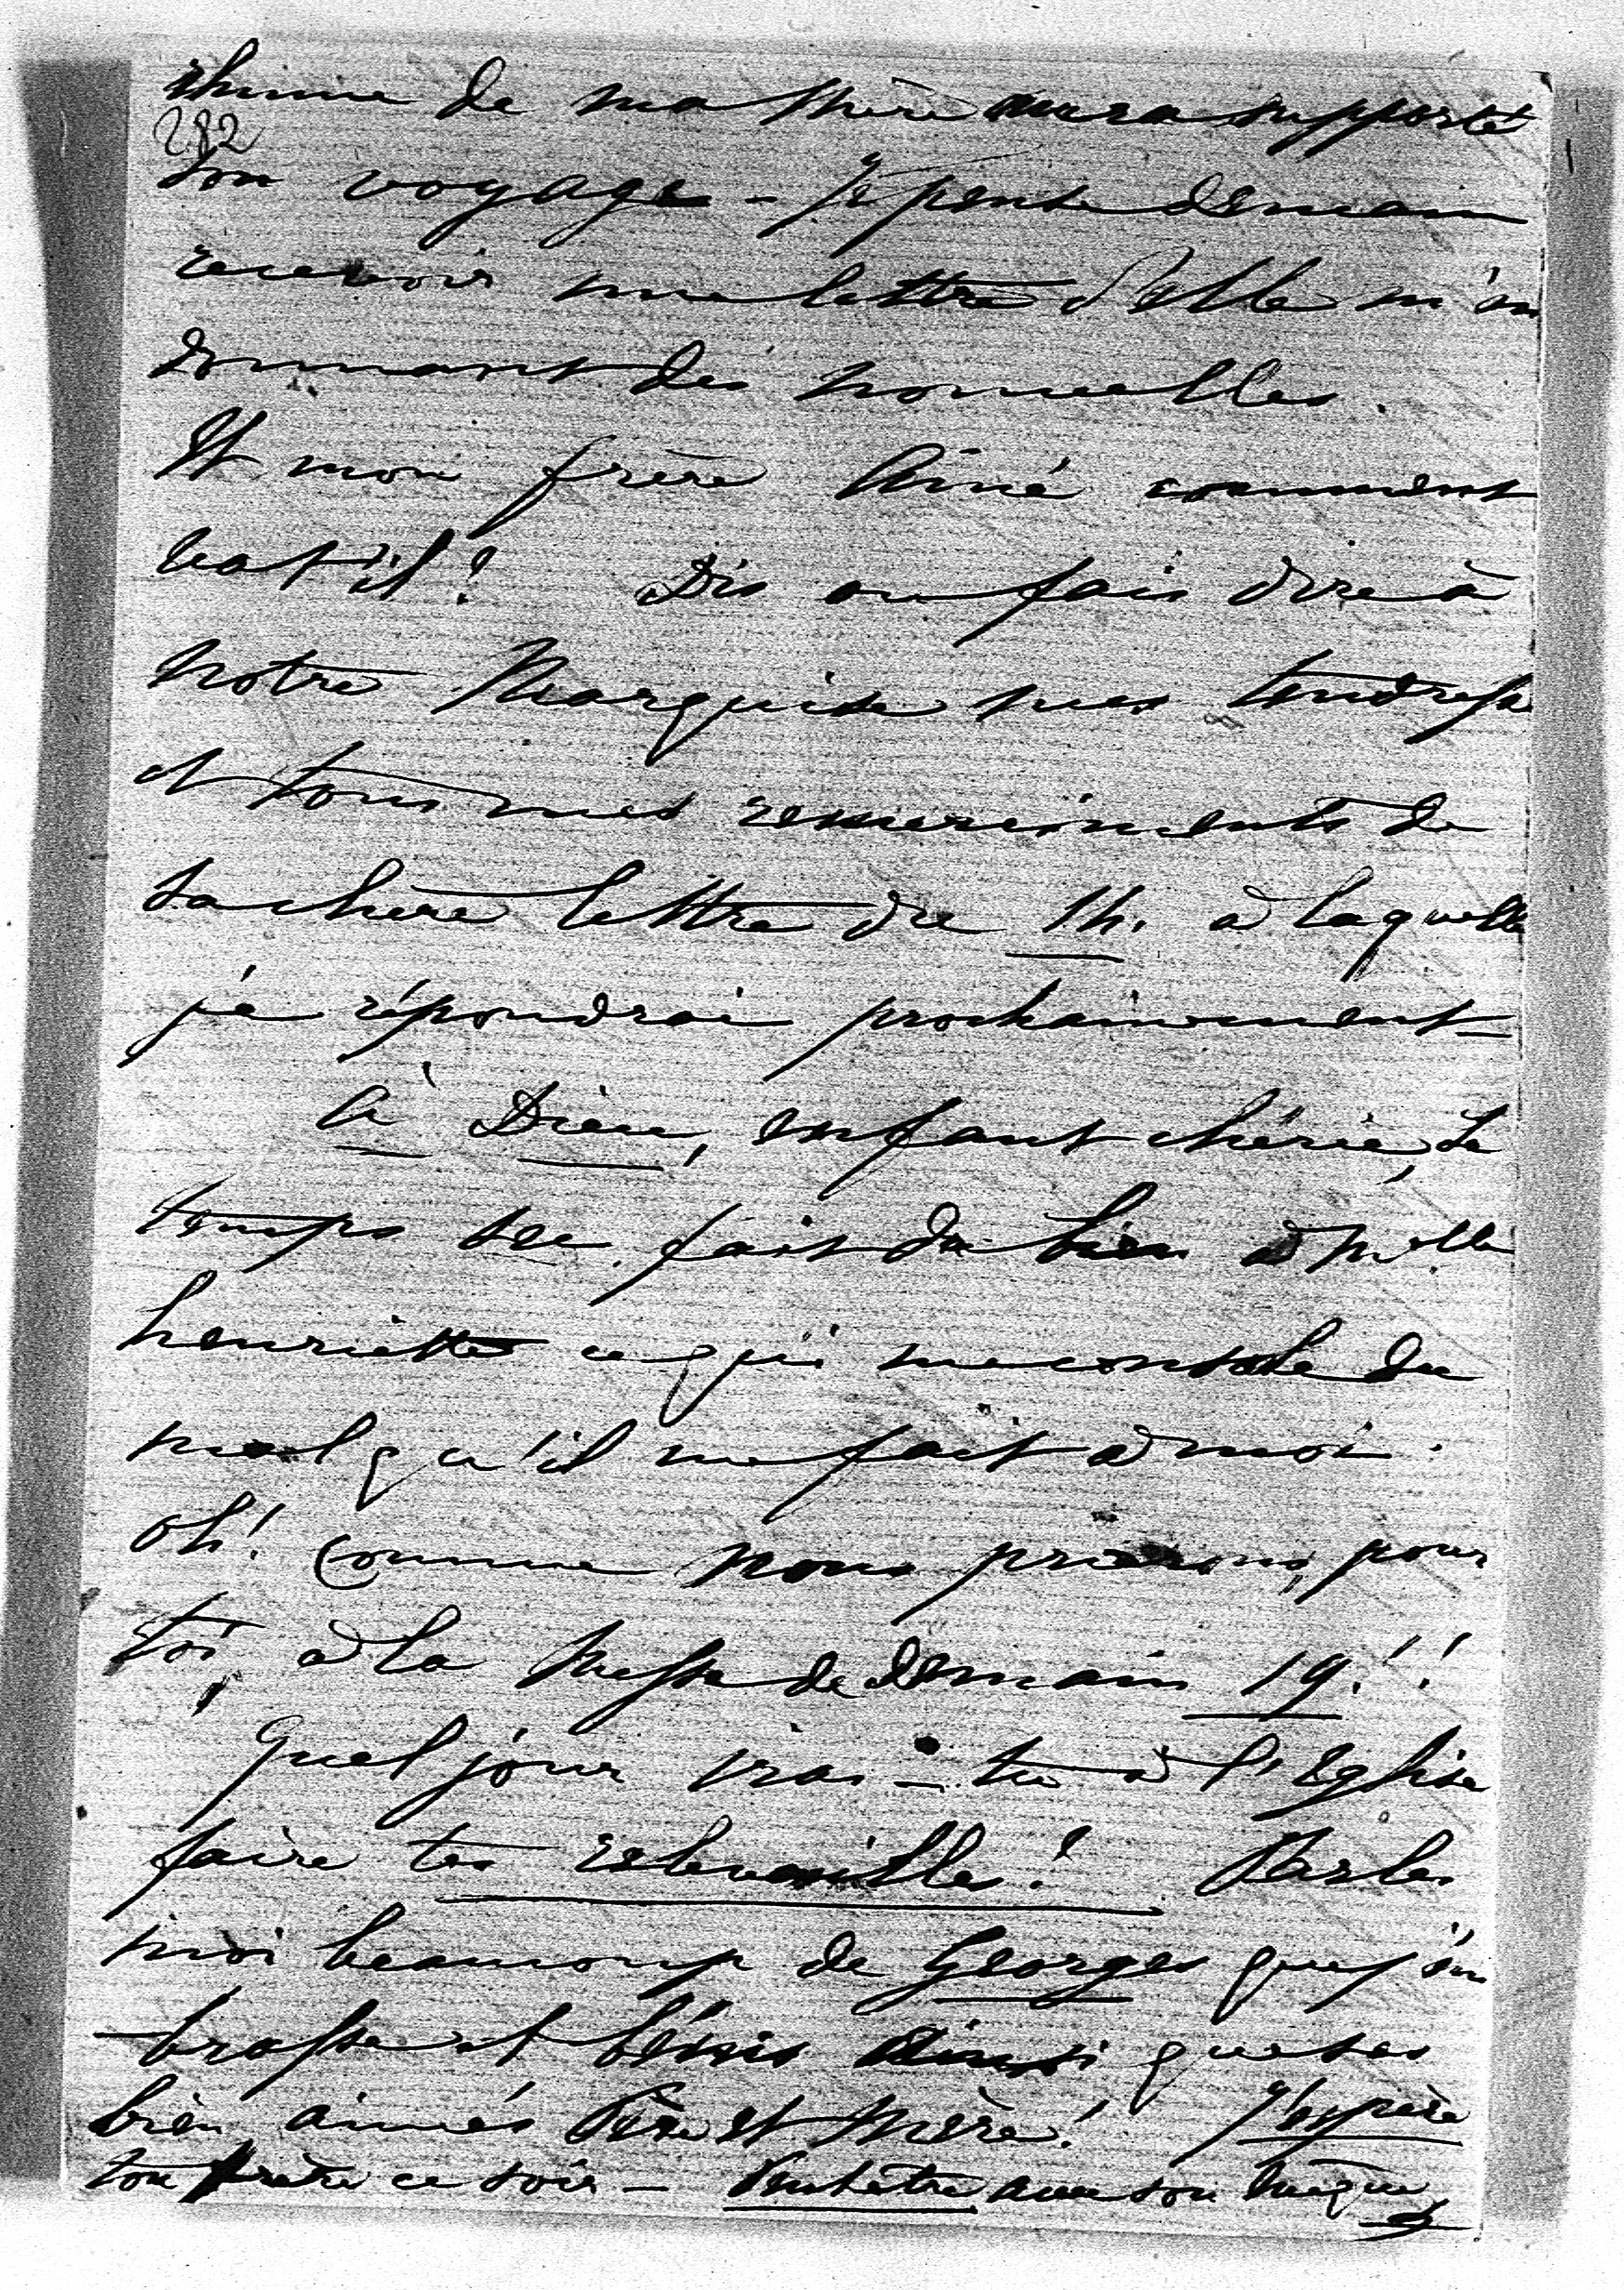 rhume de ma Mère aura supporté
282
son voyage - Je pense demain
recevoir une lettre d'Elle m'en
donnant des nouvelles.
Et mon frère Aimé comment
va t'il? Dis ou fais dire à
notre Marquise mes tendresses
et tous mes remerciments de
sa chère lettre du 14. à laquelle
je répondrai prochainement -
à Dieu, enfant chérie, Le
temps sec fait du bien à Melle
henriette ce qui me console du
mal qu'il me fait à moi.
oh! Comme nous prierons, pour
toi, à la Messe de demain 19!!
Quel jour iras-tu à l'Eglise
faire tes relevailles? Parles
moi beaucoup de Georges que j'em
-brasse et bénis ainsi que ses
bien aimés Père et Mère! J'espère
ton frère ce soir - Peut être avec son